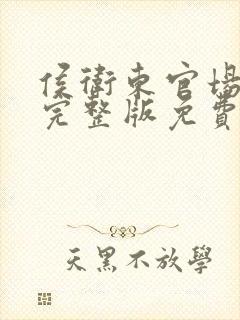 侯衛東官場
完整版免費
天黑不放學